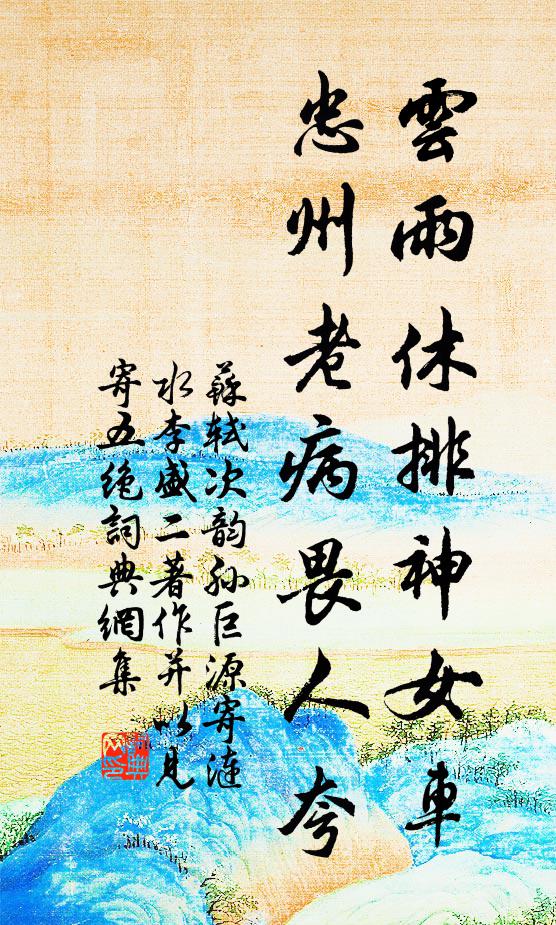 雲雨休排神女車
忠州老病畏人夸
蘇軾次韵孙巨源寄涟
水李盛二著作并以見
寄五绝詞典網集